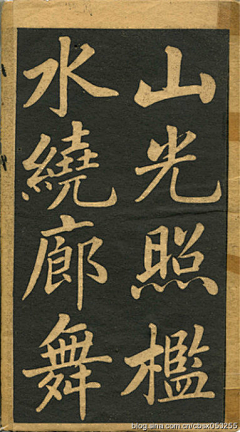 山光照檻
水繞廊舞
blog.sina.com.cn/cbsx060255